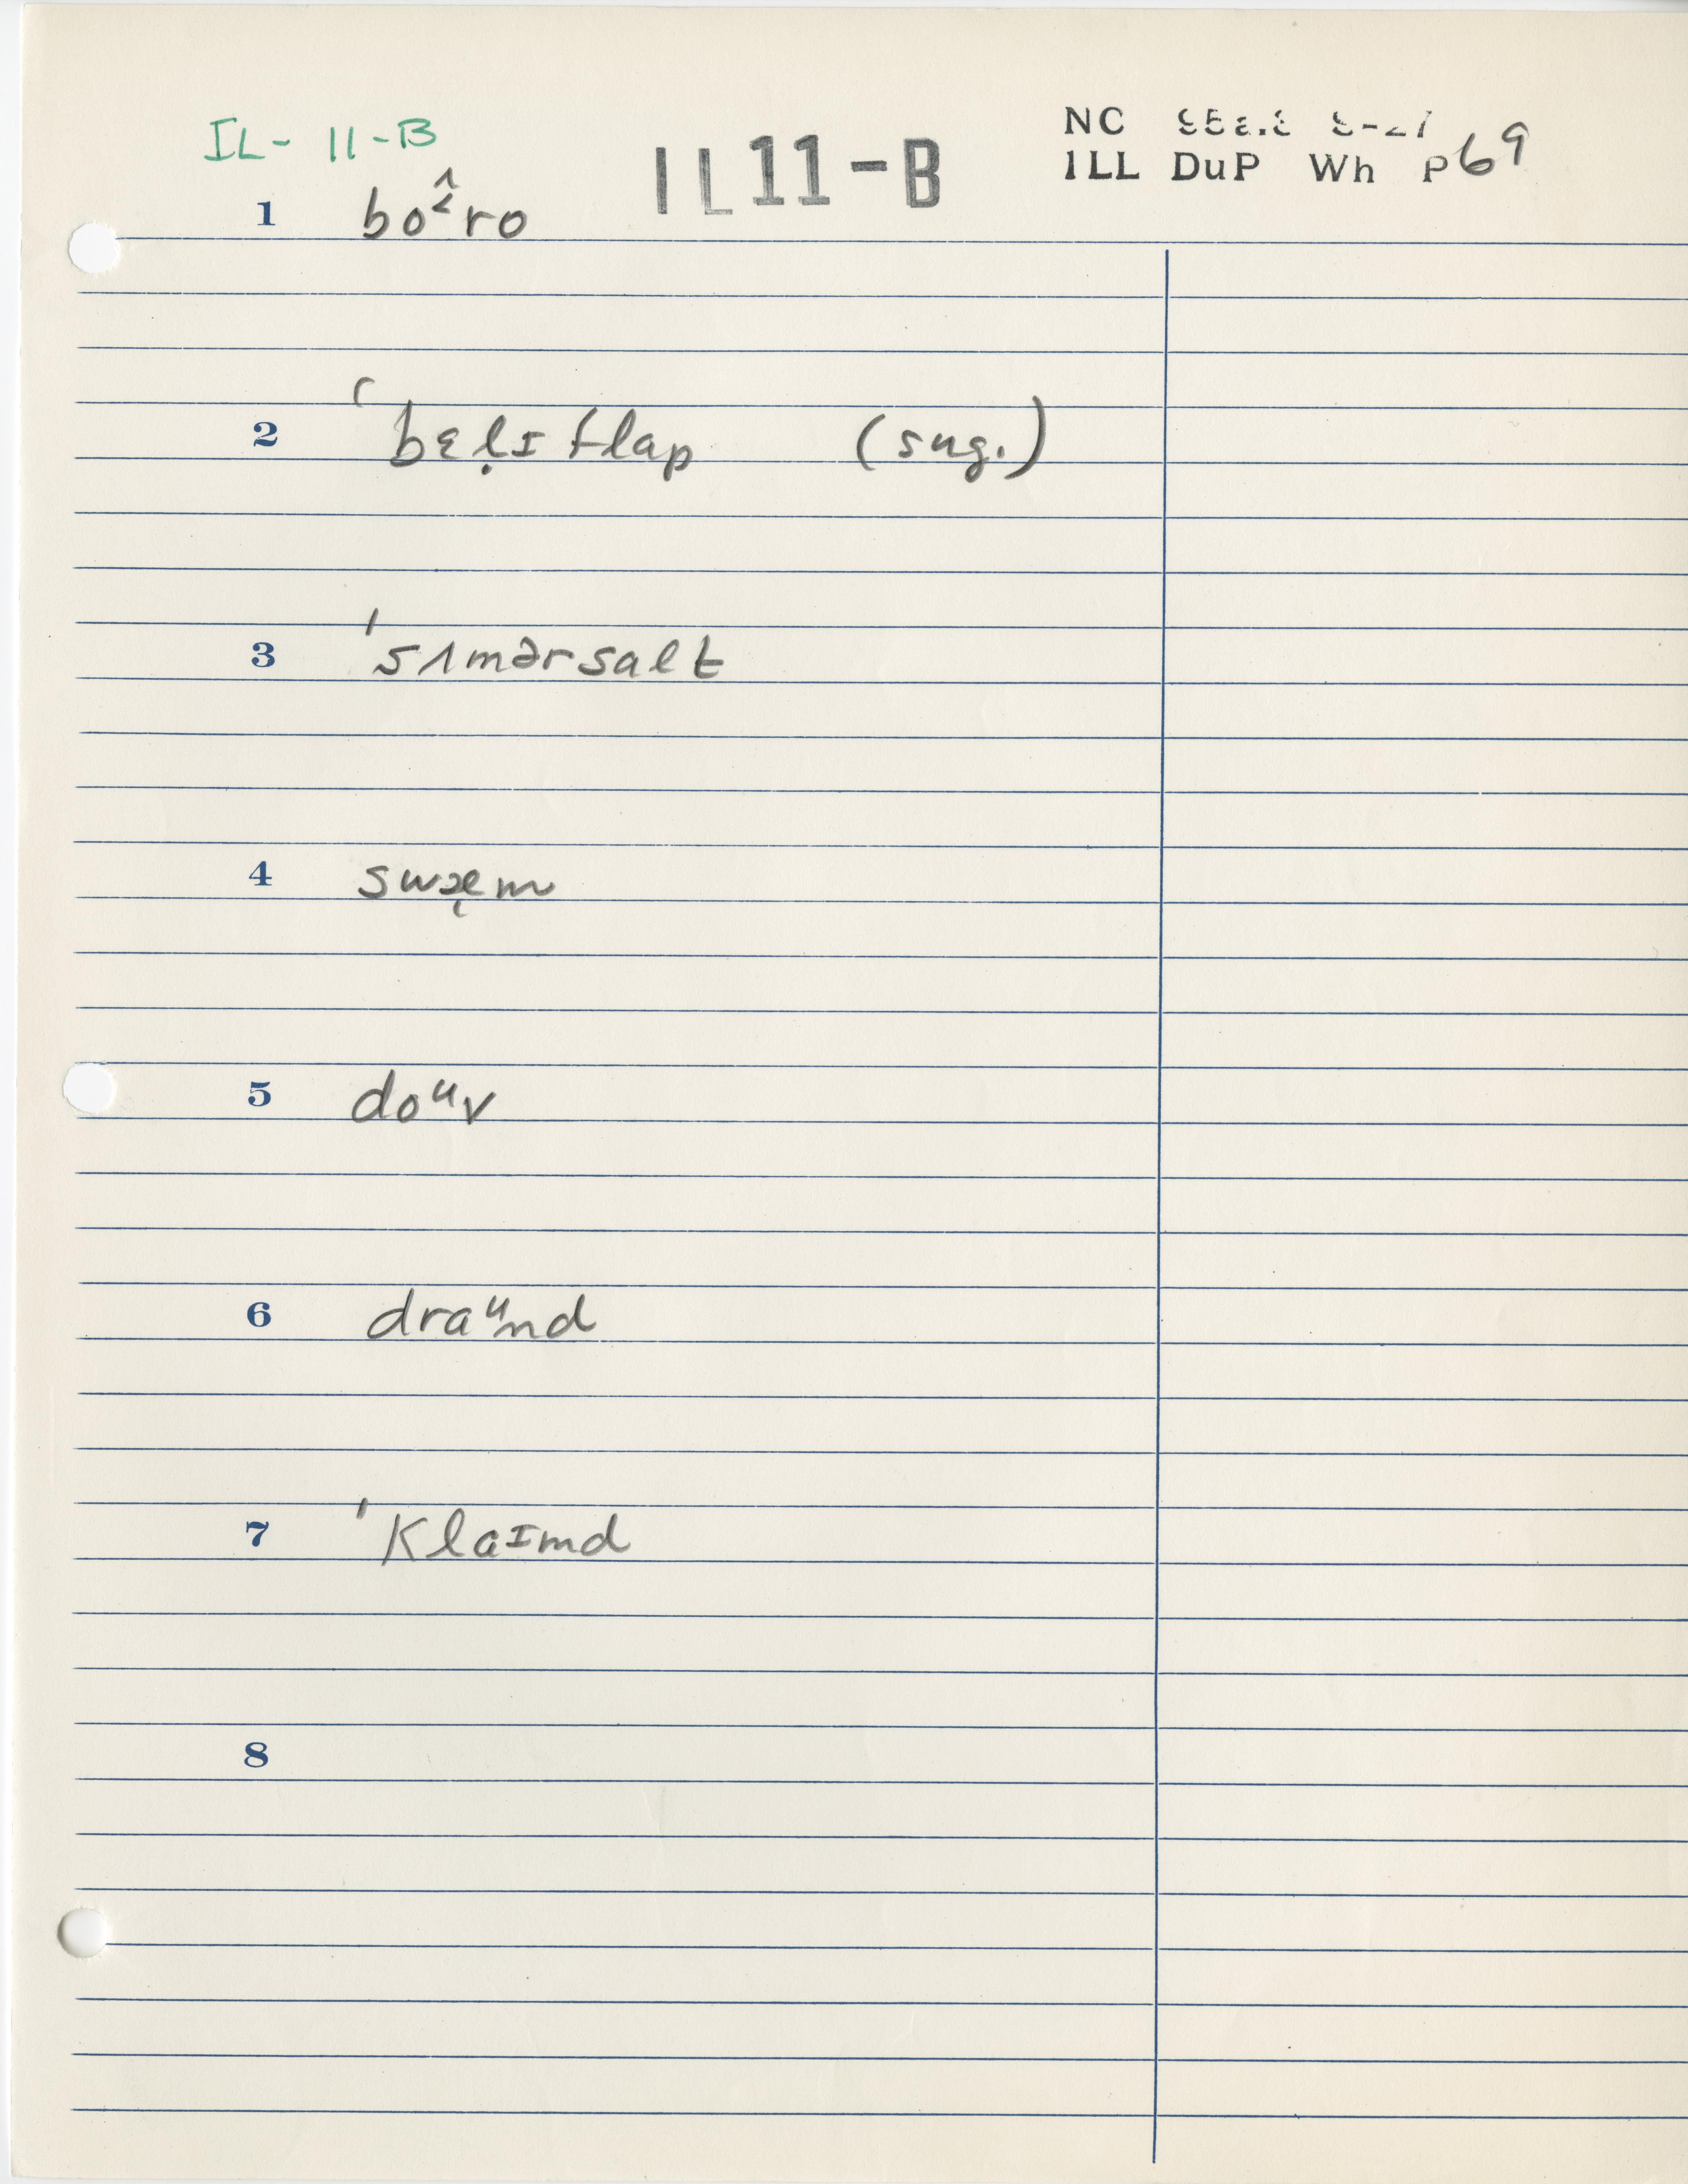 IL-11-B
IL11-B
NC
ILL DuP Wh P69
1 bo ro
2 ˈbɛlɪflap (sug.)
3 ˈsʌmərsalt
4 swæ̨m
5 doᵘv
6 draᵘnd
7 ˈKlaɪmd
8